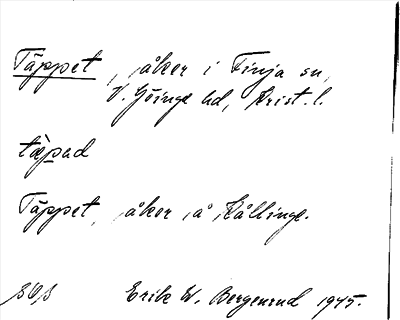 Täppet, åker i Finja sn,
V. Göinge hd, Krist. l.
tæpad
Täppet, åker å Källinge.
Erik W. Bergenrud 1945.